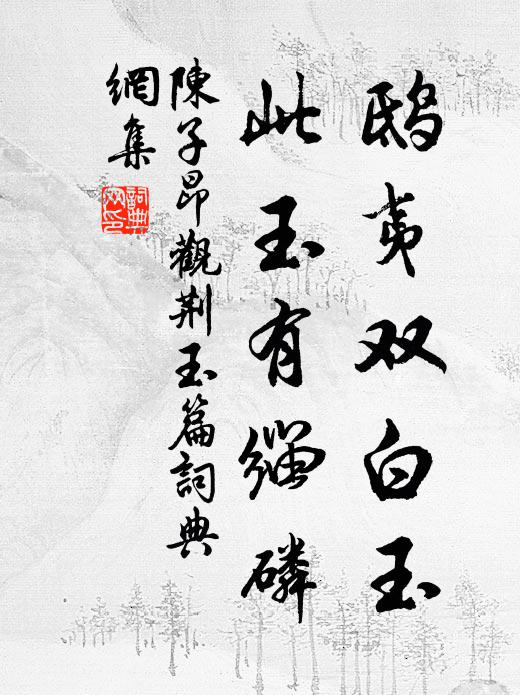 鸱夷双白玉
此玉有缁磷
陳子昂觀荆玉篇詞典
網集
詞典网印